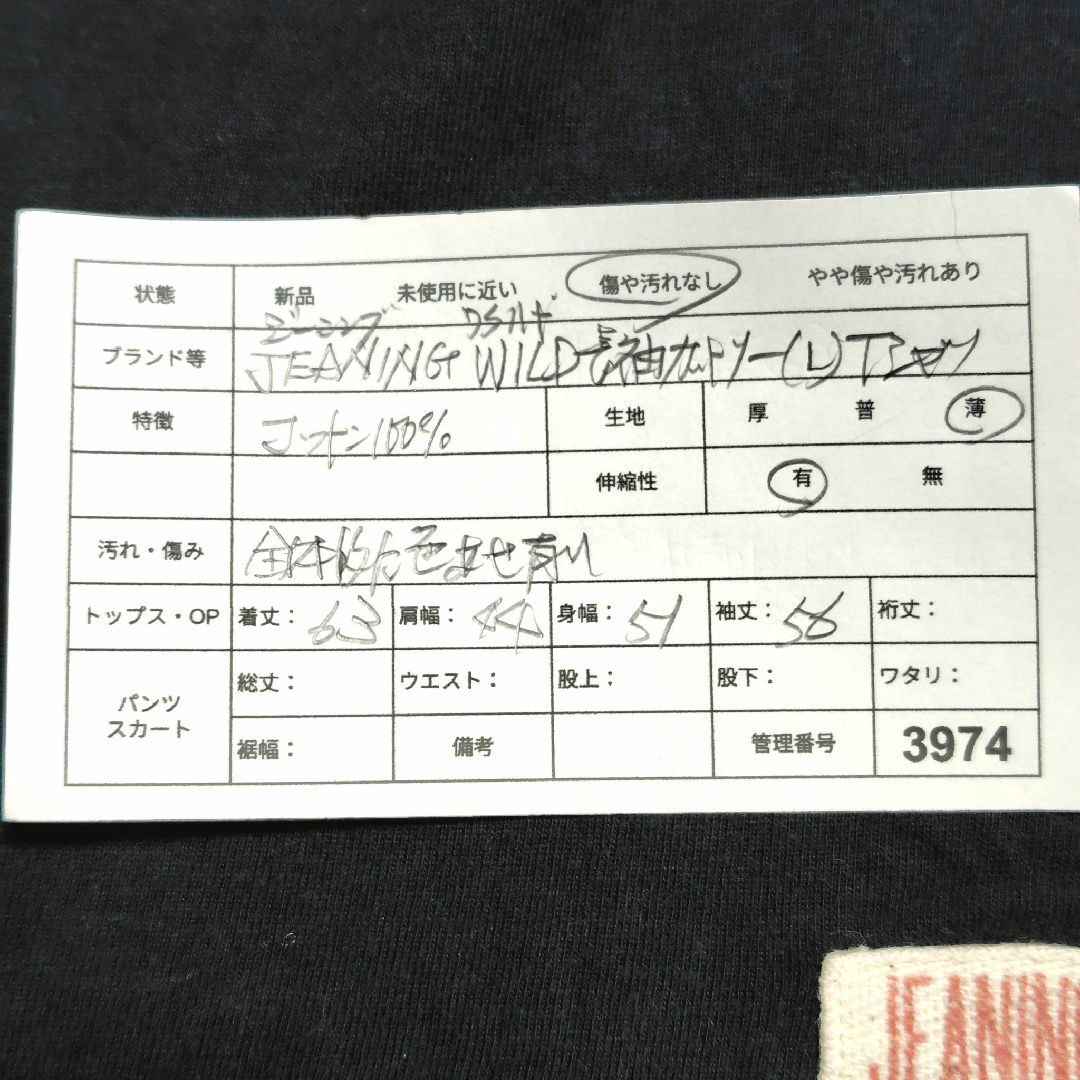 状態 新品 未使用に近い 傷や汚れなし やや傷や汚れあり
ジーニング ワイルド
ブランド等 JEANING WILD 長袖カットソー(L)Tシャツ
特徴 コットン100% 生地 厚 普 薄
伸縮性 有 無
汚れ・傷み 全体的に色あせ有り
トップス・OP 着丈: 63 肩幅: 44 身幅: 51 袖丈: 56 裄丈:
パンツ スカート
総丈: ウエスト: 股上: 股下: ワタリ:
裾幅: 備考 管理番号 3974
JEANIN